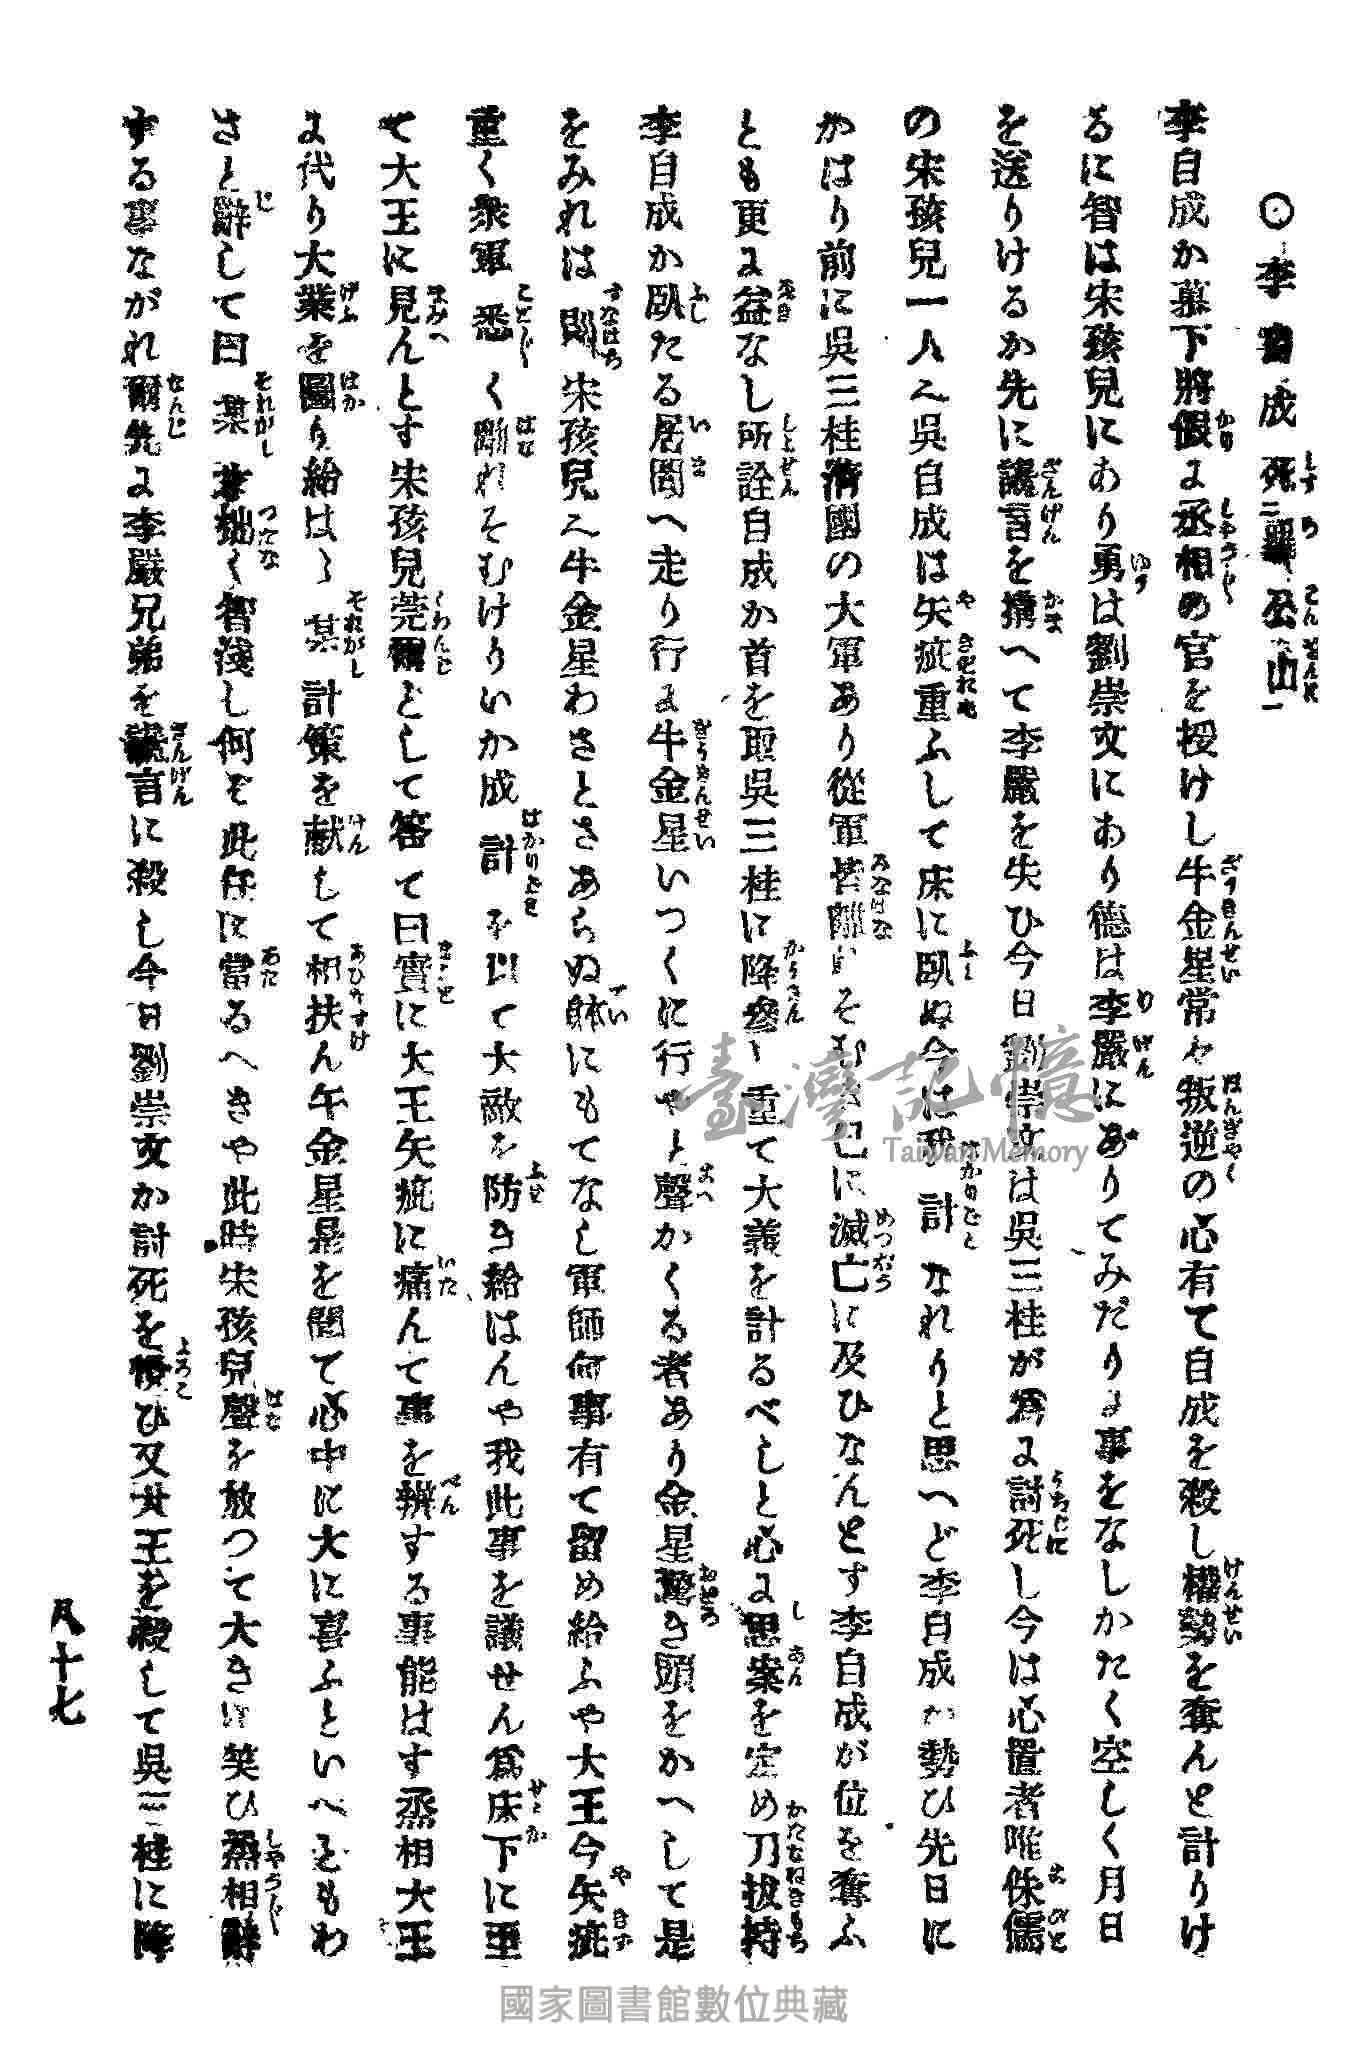 ⊙李自成死二羅公山一
李自成か幕下將假に丞相の官を授けし牛金星常々叛逆の心有て自成を殺し權勢を奪んと計りけ
るに智は宋孩兒にあり勇は劉崇文にあり德は李嚴にありてみだりに事をなしかたく空しく月日
を送りけるか先に讒言を搆へて李嚴を失ひ今日劉崇文は吳三桂が爲に討死し今は心置者唯侏儒
の宋孩兒一人へ吳自成は矢疵重ふして床に臥ぬ今は我計なれりと思へど李自成か勢ひ先日に
かはり前に吳三桂淸國の大軍あり從軍皆離れそむき已に滅亡に及ひなんとす李自成が位を奪ふ
とも更に益なし所詮自成か首を取吳三桂に降參し重て大義を計るべしと心に思案を定め刀拔持
李自成か臥たる居間へ走り行に牛金星いつくに行やと聲かくる者あり金星驚き頭をかへして是
をみれは則宋孩兒へ牛金星わさとさあらぬ躰にもてなし軍師何事有て留め給ふや大王今矢疵
重く衆軍悉く離れそむけりいか成計を以て大敵を防き給はんや我此事を議せん爲床下に至
て大王に見んとす宋孩兒莞爾として答て曰實に大王矢疵に痛んて事を辨する事能はす丞相大王
に代り大業を圖り給はゝ某計策を献して相扶ん午金星是を聞て心中に大に喜ふといへどもわ
さと辭して曰某才拙く智淺し何ぞ此任に當るへきや此時宋孩兒聲を放つて大きに笑ひ丞相辭
する事なかれ爾先に李嚴兄弟を讒言に殺し今日劉崇文か討死を悅ひ又大王を殺して吳三桂に降
八十七
臺灣記憶
Taiwan Memory
國家圖書館數位典藏